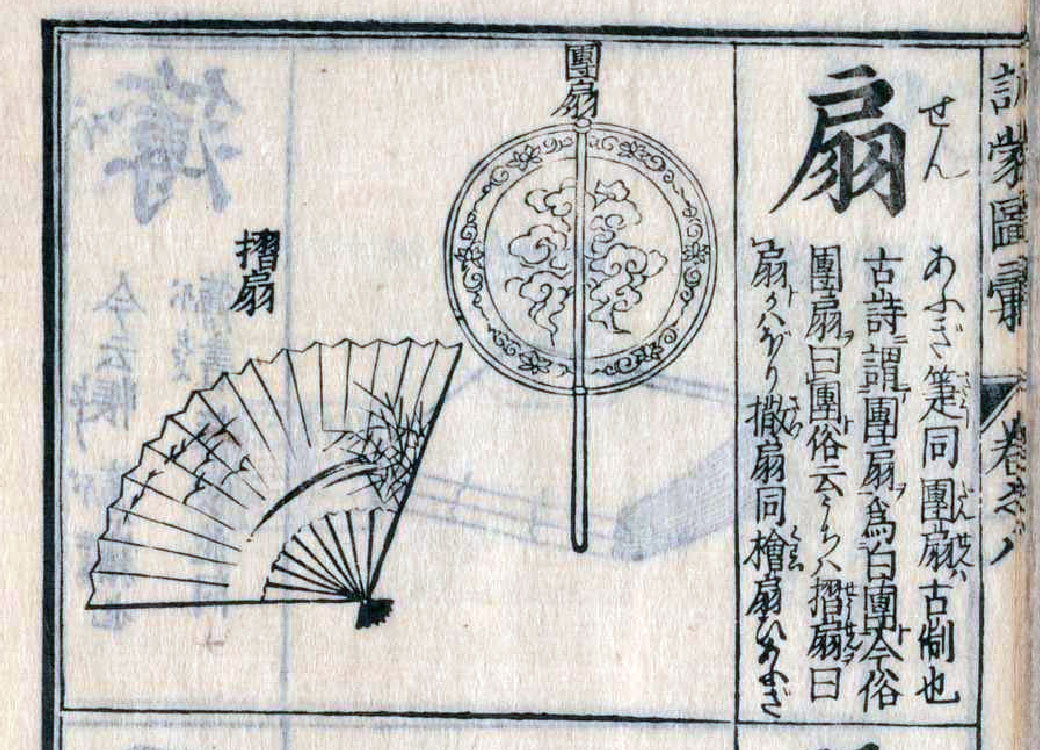 訓蒙圖彙
卷之八
扇
せん
あふぎ箑同團扇ハ古制也
古詩ニ謂團扇ヲ爲白團ト今俗
團扇ヲ曰團ト俗云うちハ摺扇ヲ曰
扇トかハぼり撒扇同檜扇ひあふぎ
團扇
摺扇